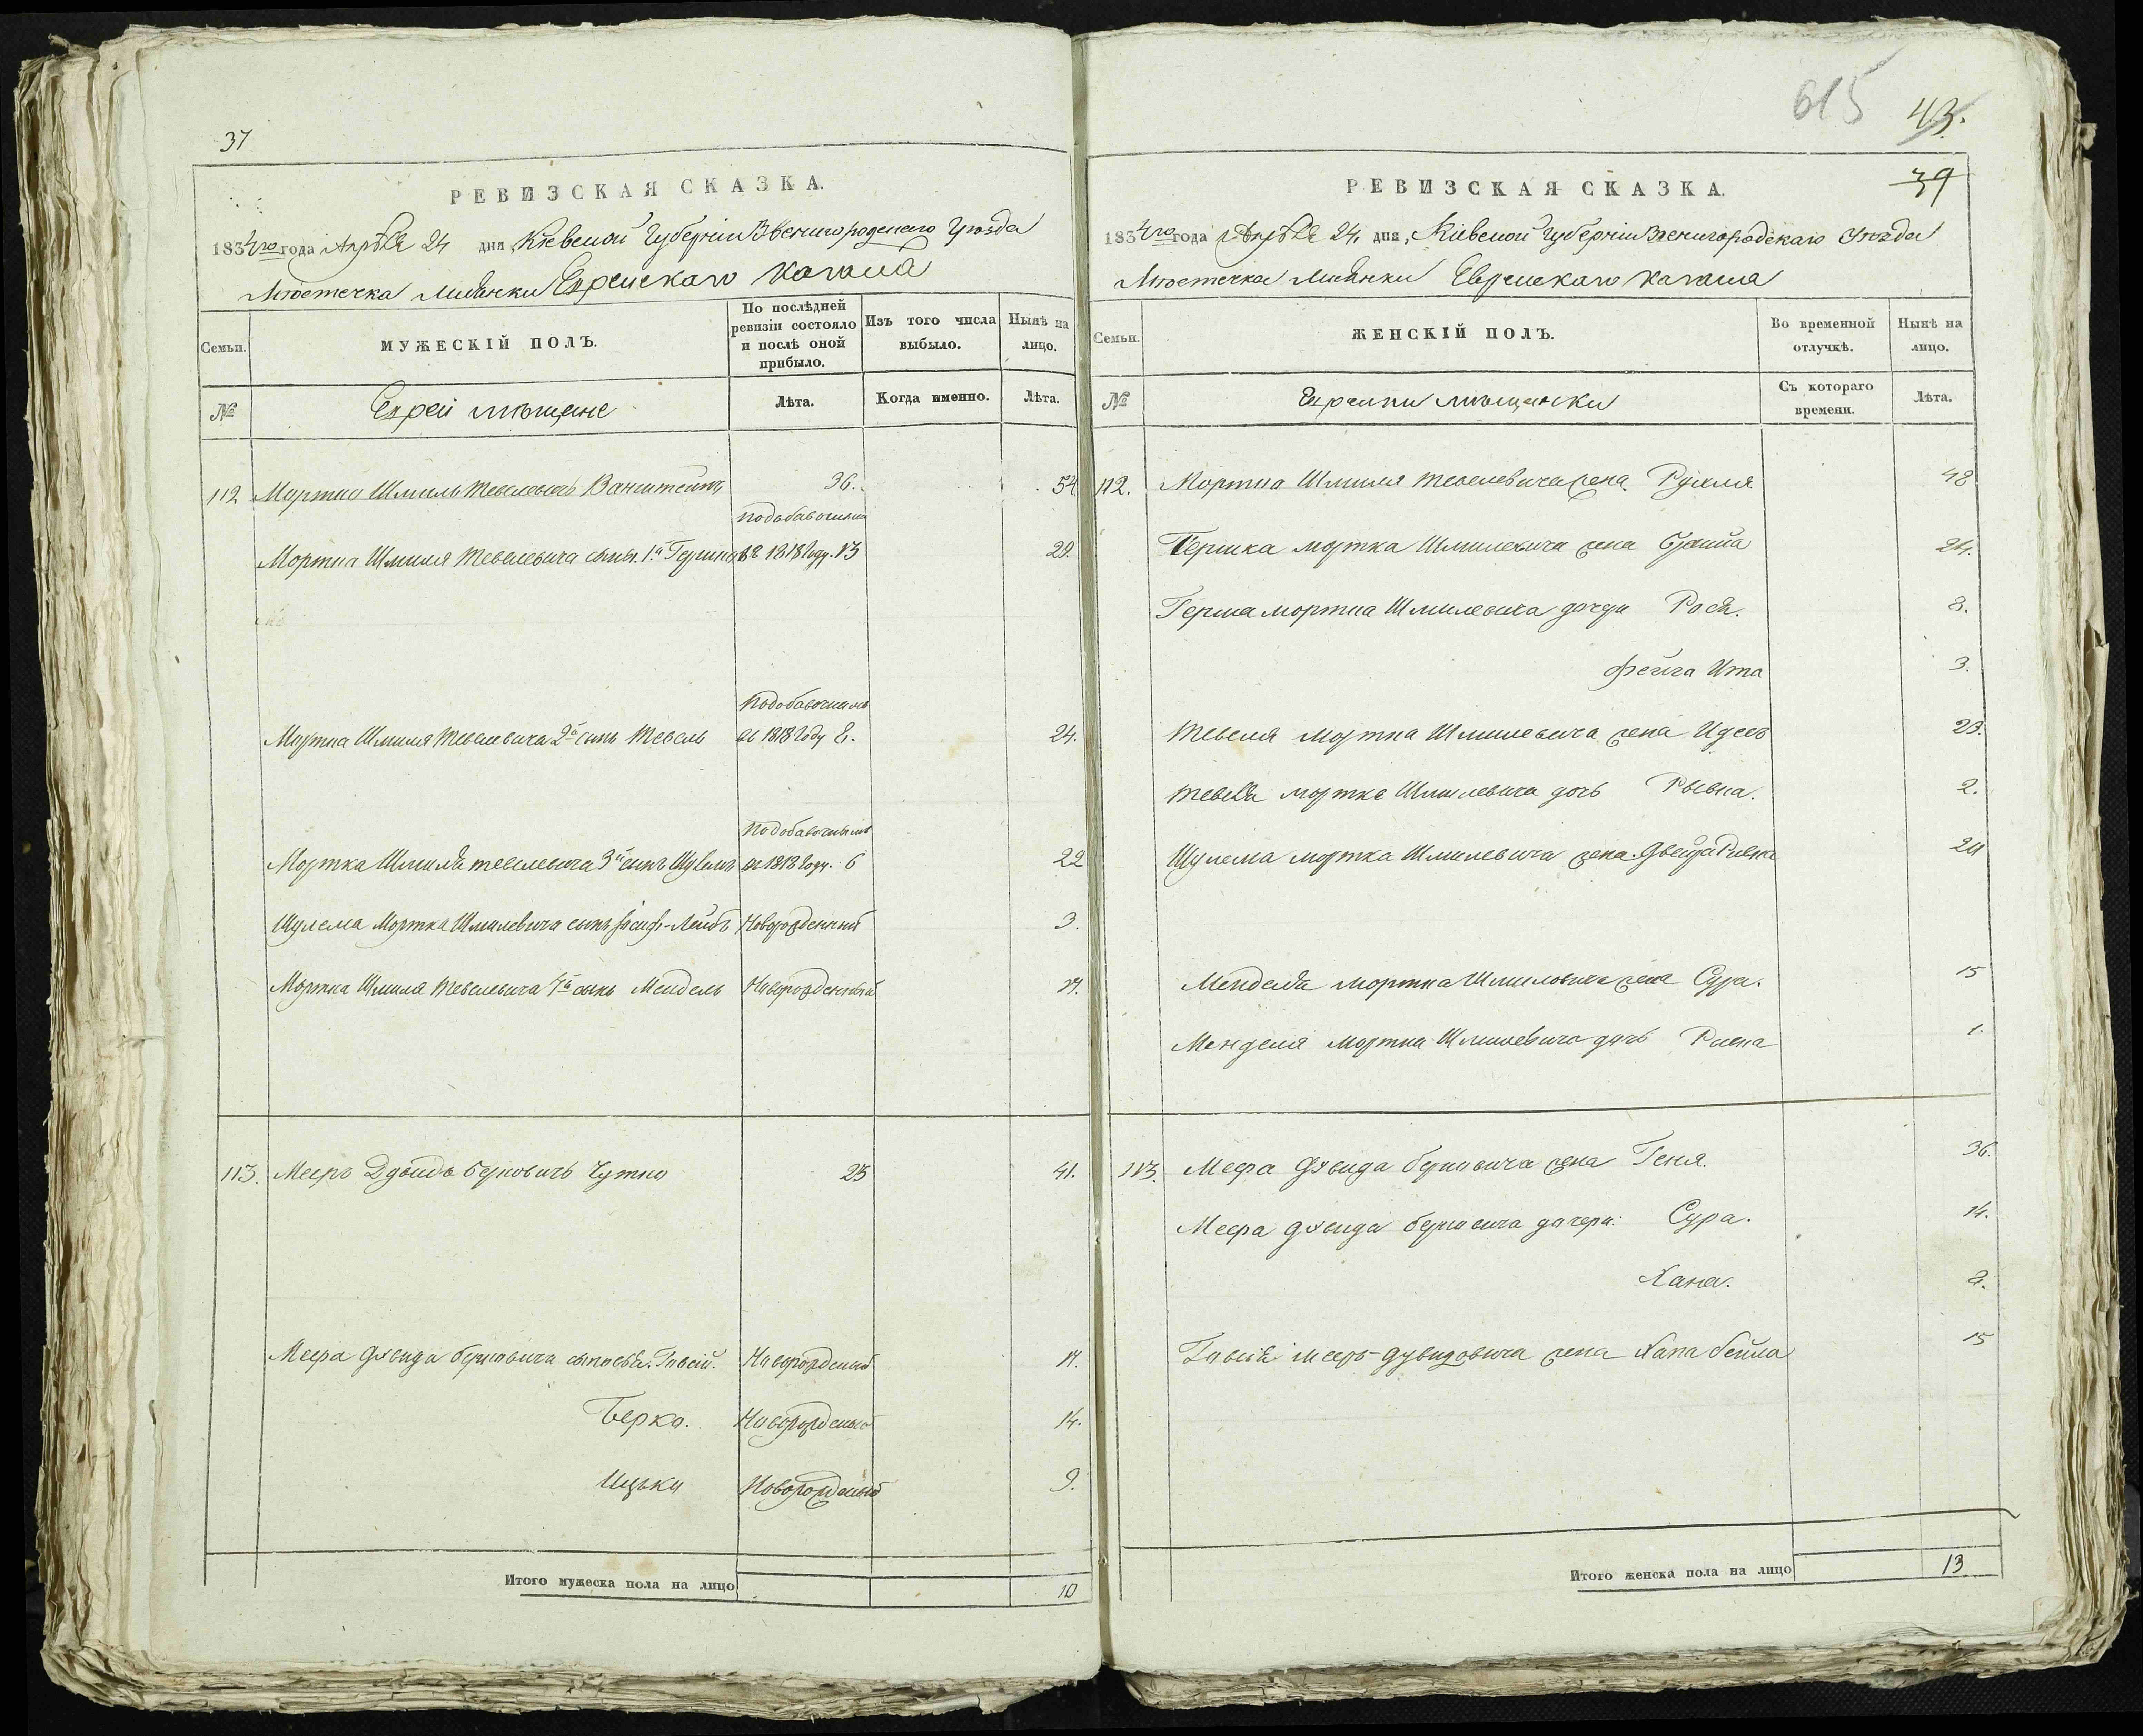 37
РЕВИЗСКАЯ СКАЗКА.
1834го года Апрѣля 24 дня, Кіевской Губерніи Звенигородскаго Уѣзда
Мѣстечка Лисянки Еврейскаго Кагала
Семьи.
МУЖЕСКІЙ ПОЛЪ.
По послѣдней ревизіи состояло и послѣ оной прибыло.
Изъ того числа выбыло.
Нынѣ на лицо.
№
Евреи мѣщане
Лѣта.
Когда именно.
Лѣта.
112 Мортко Шмиль Тевелевичъ 36. 54
по добавочнымъ
Мортка Шмиля Тевелевича сынъ. 1й Гершко въ 1818 году. 13 29.
по добавочнымъ
Мортка Шмиля Тевелевича 2й сынъ Тевель въ 1818 году 8. 24.
по добавочнымъ
Мортка Шмиля Тевелевича 3й сынъ Шулимъ въ 1818 году. 6 22
Шулема Мортка Шмилевича сынъ Іосифъ-Лейбъ Новорожденный 3.
Мортка Шмиля Тевелевича 4й сынъ Мендель Новорожденный
113. Мееръ Дувидъ Берковичъ 25 41.
Меера Дувида Берковича сыновья. Новорожденый
Берко. Новорожденый 14.
Ицько Новорожденый 9.
Итого мужеска пола на лицо 10
615 43.
39
РЕВИЗСКАЯ СКАЗКА.
1834го года Апрѣля 24. дня, Кіевской Губерніи Звенигородскаго Уѣзда
Мѣстечка Лисянки Еврейскаго Кагала
Семьи.
ЖЕНСКІЙ ПОЛЪ.
Во временной отлучкѣ.
Нынѣ на лицо.
№
Еврейки мѣщанки
Съ котораго времени.
Лѣта.
112. Мортка Шмиля Тевелевича жена Рухля 48
Гершка Мортка Шмилевича жена 24.
Герша Мортка Шмилевича дочери Рося. 8.
Фейга Ита 3.
Тевеля Мортка Шмилевича жена Идесъ 23.
Тевеля Мортка Шмилевича дочь Рывка. 2.
Шулема Мортка Шмилевича жена. Двейра Ривка 20
Менделя Мортка Шмилевича жена Сура. 15
Менделя Мортка Шмилевича дочь Ривка 1.
113. Меера Дувида Берковича жена Геня. 36.
Меера Дувида Берковича дочери: Сура. 14.
Хана. 2.
Меер-Дувидовича жена Хана Бейла 15
Итого женска пола на лицо 13